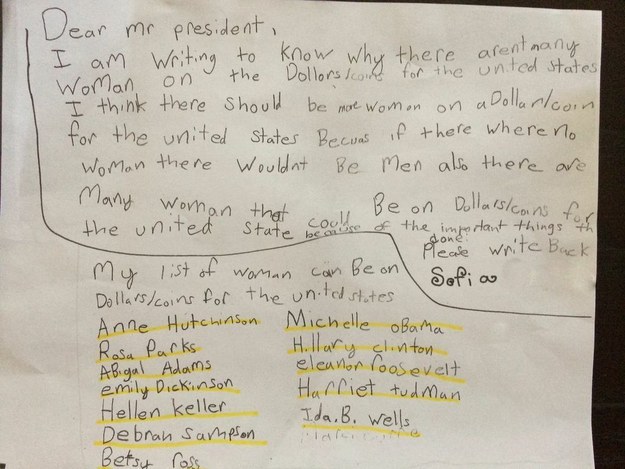 Dear mr president,
I am writing to know why there arent many
woman on the Dollors/coins for the united States
I think there should be more woman on a Dollar/coin
for the united states Becuas if there where no
woman there wouldnt Be men also there are
Many woman that could Be on Dollars/coins for
the united state because of the important things th
done.
Please write Back
Sofia
My list of woman can Be on
Dollars/coins for the united states
Anne Hutchinson
Rosa Parks
Abigal Adams
emily Dickinson
Hellen keller
Debrah sampson
Betsy ross
Michelle oBama
Hillary clinton
eleanor roosevelt
Harriet tudman
Ida.B. wells